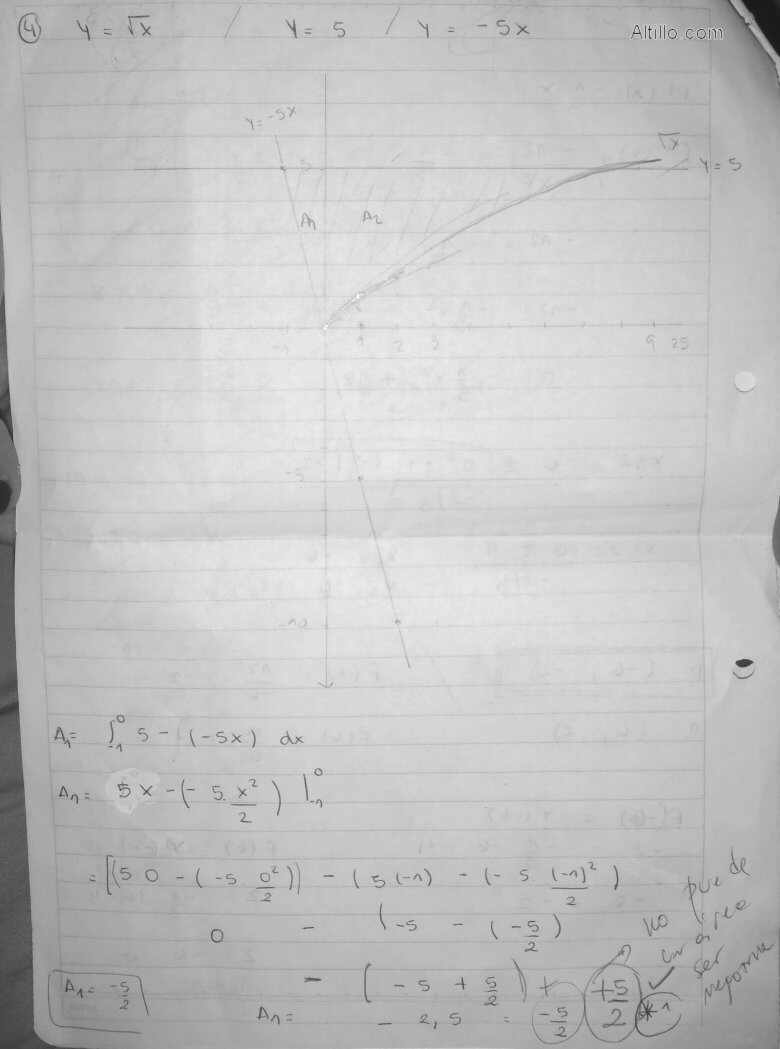 ④ Y = √x / Y = 5 / Y = -5x
Altillo.com
Y = -5x
√x
5
Y = 5
A₁ A₂
-1 1 2 3 9 25
-5
-10
A₁ = ∫₋₁⁰ 5 - (-5x) dx
A₁ = 5x - (- 5 · x²/2) |₋₁⁰
= [(5 0 - (-5 0²/2)] - (5 (-1) - (- 5 (-1)²/2)
0 - (-5 - (-5/2)
- (-5 + 5/2) +
A₁ = -5/2
A₁ = - 2,5 = -5/2 +5/2 * 1
no puede
un área
ser
negativa